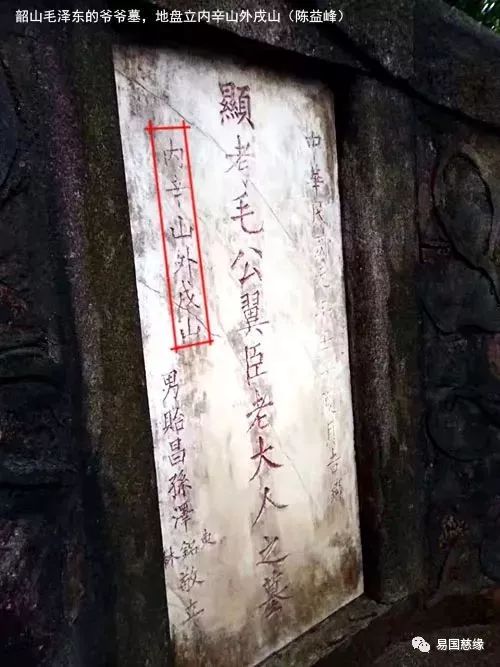 韶山毛泽东的爷爷墓，地盘立内辛山外戌山（陈益峰）
中華民國元年
顯老毛公翼臣老大人之墓
内辛山外戌山
男貽昌孫澤銘敬立
林
易国慈缘